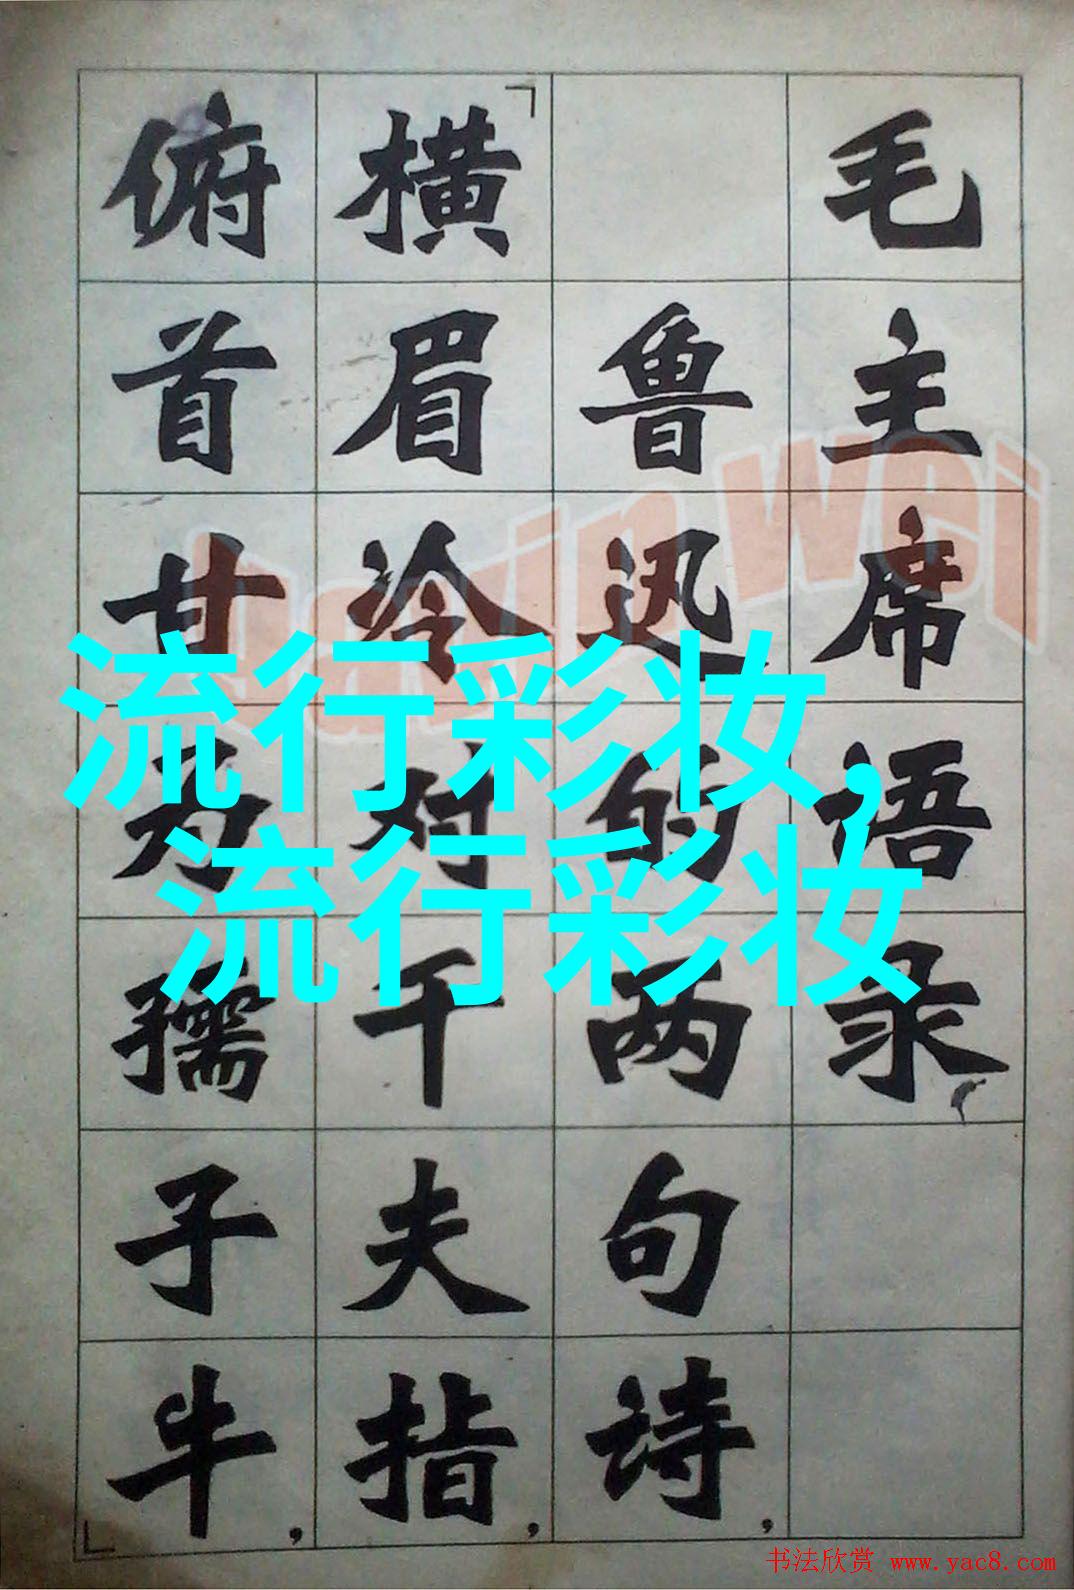 毛主席语录
鲁迅的两句诗，
「横眉冷对千夫指，
俯首甘为孺子牛，」
流行彩妆，
流行彩妆
书法欣赏 www.yac8.com